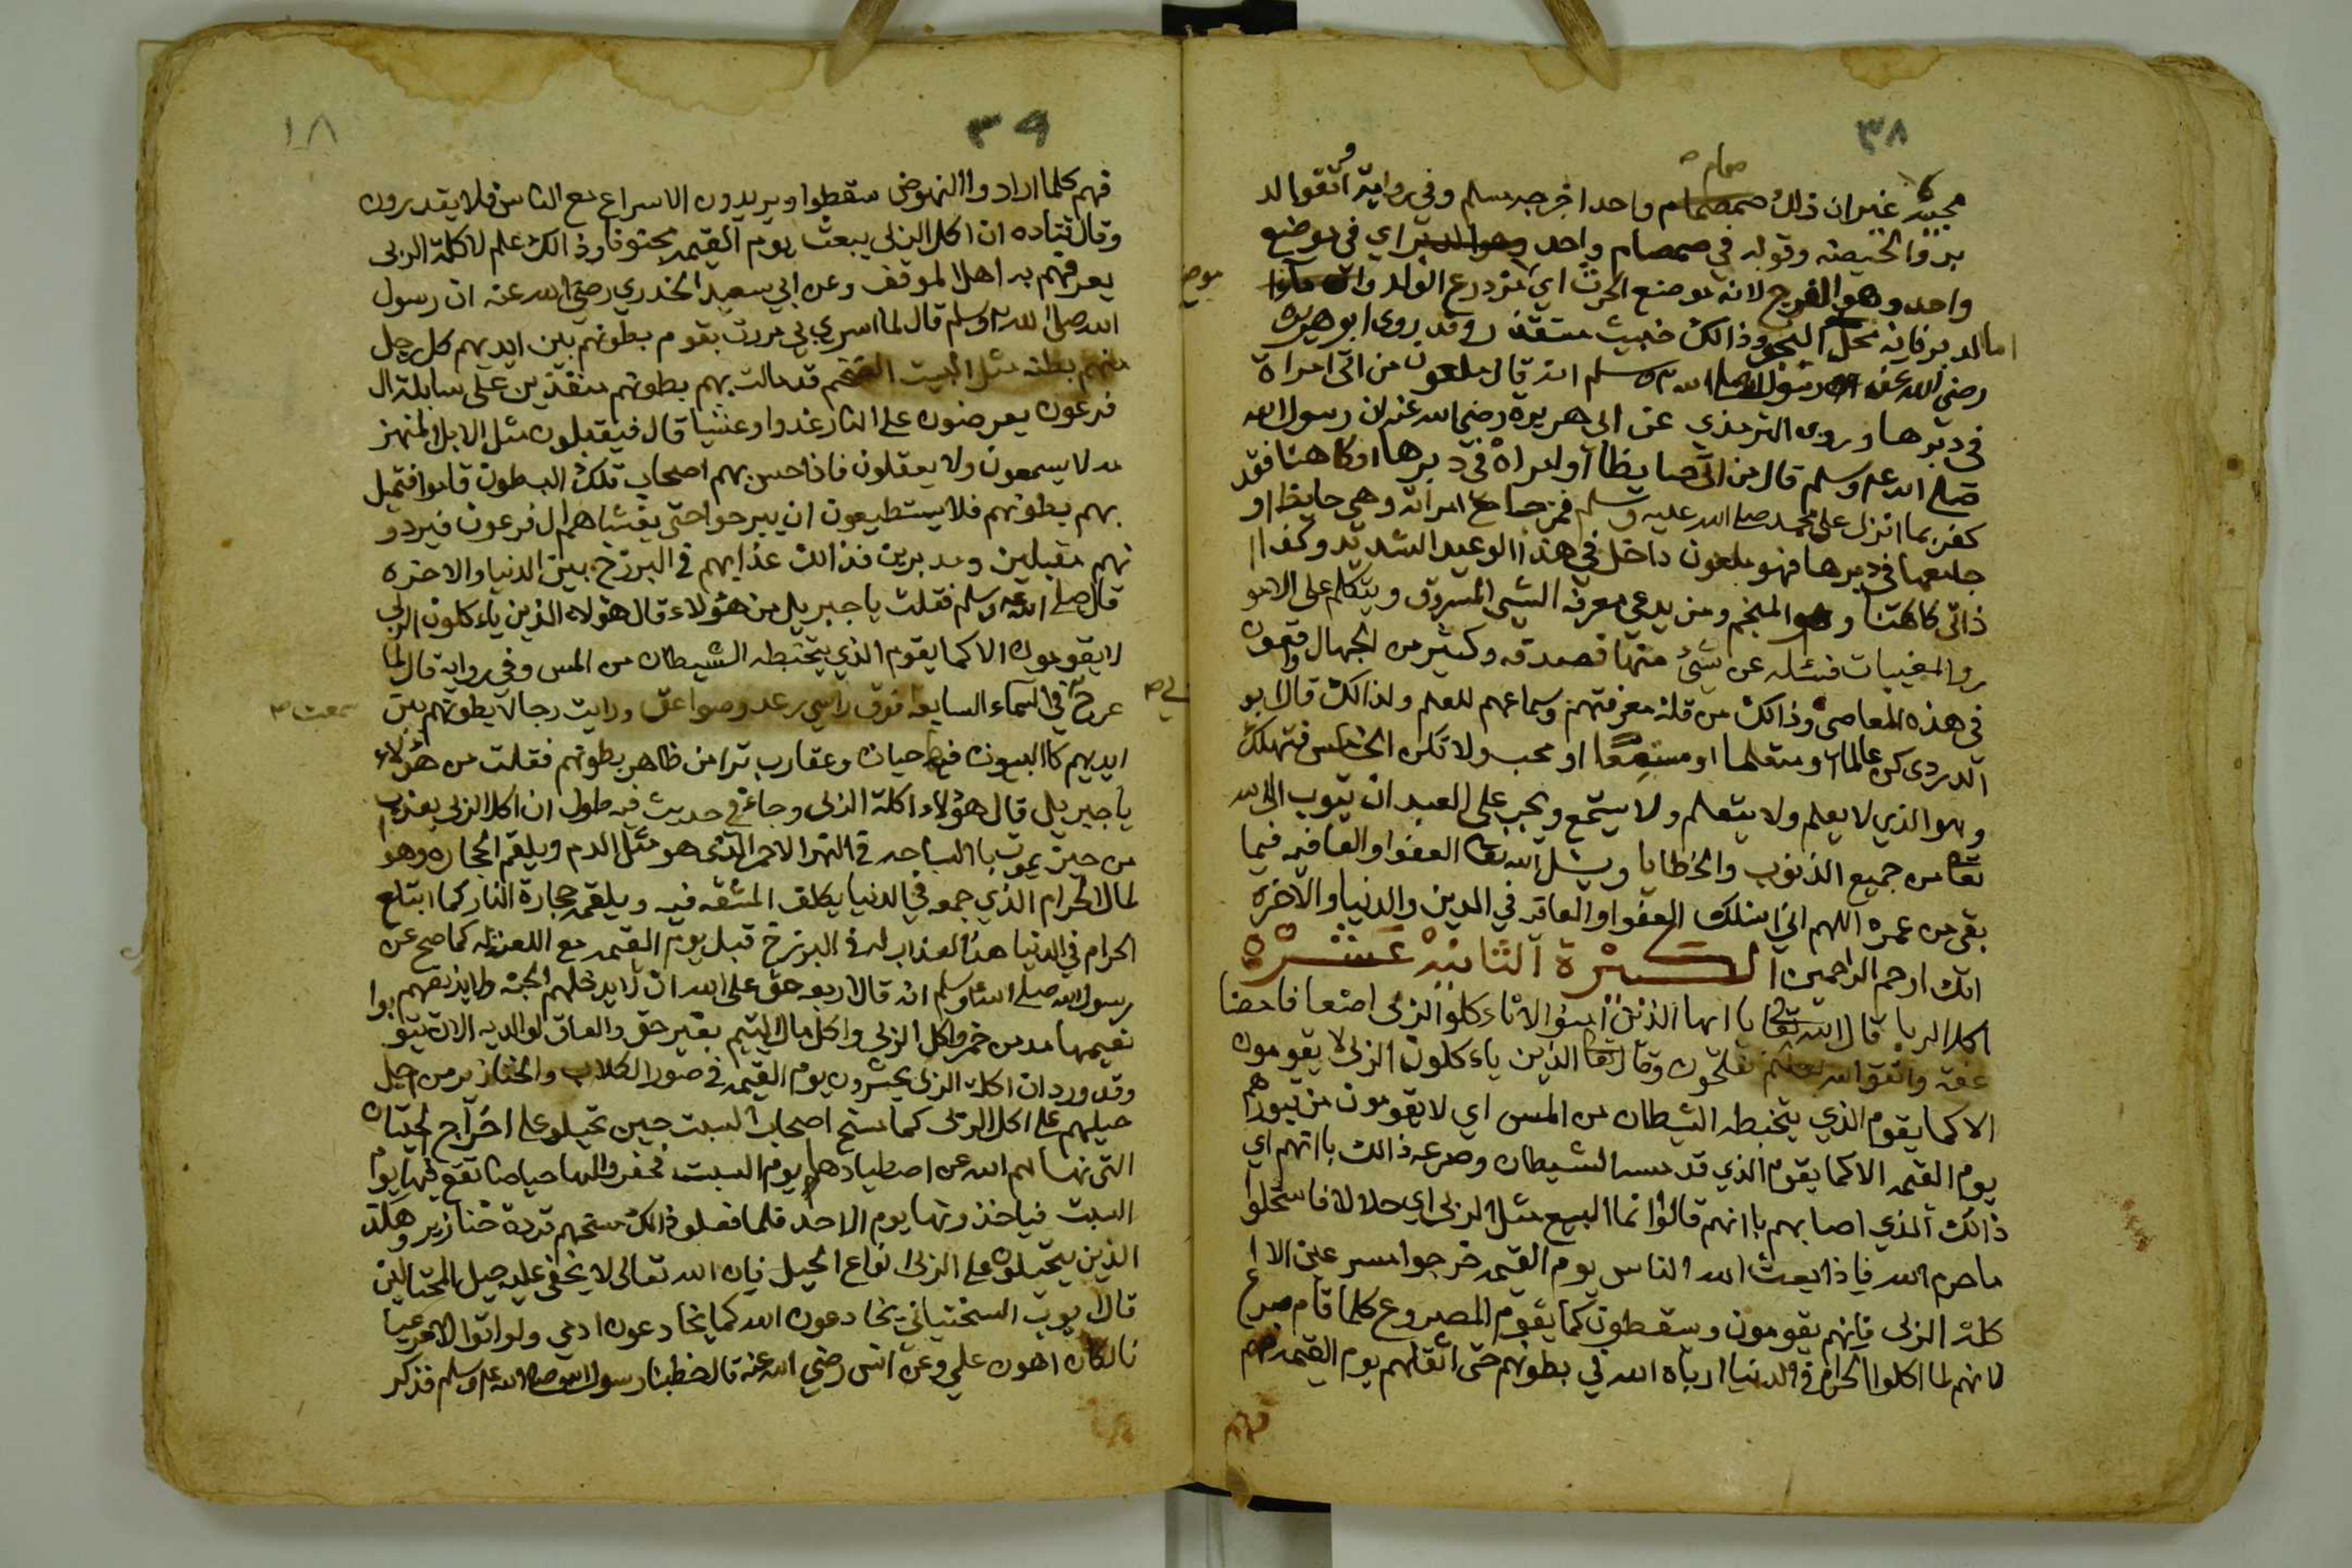 ٣٨
صمام
مجبيه غيران ذالك صمصمام واحد اخرجه مسلم وفي رواية اتقوا لد
بر والحيضة وقوله في صمصام واحد اي في موضع
واحد وهو الفرج لانه موضع الحرث اي مزدرع الولد
اما الدبر فانه محل النجو وذالك خبيث مستقذ ر وقد روى ابو هريره
رضي الله عنه رسول الله صلى الله وسلم انه قال ملعون من اتى امراة
في دبرها وروى الترمذي عن ابي هريرة رضي الله عنه ان رسول الله
صلى الله علىه وسلم قال من اتى حايظا او امراة في دبرها او كاهنا فقد
كفر بما انزل على محمد صلى الله عليه وسلم فمن جامع امراته وهي حايظ او
جامعها في دبرها فهو ملعون داخل في هذا الوعيد الشديد وكذا ا
ذاتى كاهنا وهو المنجم ومن يدعي معرفة الشي المسروق ويتكلم على الامو
ر والمغيبات فسئله عن شئ منها فصدقه وكثير من الجهال واقعون
في هذه المعاصي وذالك من قلة معرفتهم وسماعهم للعلم ولذالك قال ابو
الدردى كن عالما او متعلما او مستمعا او محب ولا تكن الخامس فتهلك
وهو الذي لا يعلم ولا يتعلم ولا يستمع ويجب على العبد ان يتوب الى الله
تعا من جميع الذنوب والخطايا ويسئل الله تعا العفوا والعافيه فيما
بقي من عمره اللهم اني اسئلك العفوا والعافيه في الدين والدنيا والاخره
انك ارحم الراحمين الكبيرة الثانية عشرة
اكل الربا قال الله تعا يا ايها الذين امنوا لا تاء كلوا الربى اضعا فا مضا
عفة واتقوا الله لعلكم تفلحون وقال تعا الذين ياء كلون الربى لا يقومون
الا كما يقوم الذي يتخبطه الشيطان من المس اي لا يقومون من قبورهم
يوم القيمه الا كما يقوم الذي قد مسه الشيطان وصرعه ذالك باانهم اي
ذالك الذي اصابهم باانهم قالوا انما البيع مثل الربى اي حلالا فاستحلوا
ما حرم الله فاذا يعث الله الناس يوم القيمه خرجوا مسرعين الا ا
كلة الربى فانهم يقومون ويسقطون كما يقوم المصروع كلما قام صرع
لانهم لما اكلوا الحرام في الدنيا ارباه الله في بطونهم حتى اثقلهم يوم القيمه فهم
فهم
٣٩
١٨
فهم كلما ارادوا النهوض سقطوا ويريدون الاسراع مع الناس فلا يقدرون
وقال قتاده ان اكل الربى يبعث يوم القيمه مجنونا وذالك علم لاكلة الربى
يعرفهم به اهل الموقف وعن ابي سعيد الخدري رضي الله عنه ان رسول
الله صلى الله وسلم قال لما اسري بي مررت بقوم بطونهم بين ايديهم كل رجل
منهم بطنه مثل البيت الضخم قد مالت بهم بطونهم منضدين على سابلة ال
فرعون يعرضون على النار غدوا وعشيا قال فيقبلون مثل الابل المنهز
مه لا يسمعون ولا يعقلون فاذا احس بهم اصحاب تلك البطون قاموا فتميل
بهم بطونهم فلا يستطيعون ان يبرحوا حتى يغشاهم ال فرعون فيردو
نهم مقبلين ومدبرين فذالك عذابهم في البرزخ بين الدنيا والاخره
قال صلى الله عليه وسلم فقلت يا جبريل من هؤلاء قال هؤلاء الذين ياء كلون الربى
لا يقومون الا كما يقوم الذي يتخبطه الشيطان من المس وفي رواية قال لما
عرج في السماء السابعة فوق راسي رعد وصواعق ورايت رجالا بطونهم بين
سمعت
ايديهم كاالبيوت فيها حيات وعقارب ترا من ظاهر بطونهم فقلت من هؤلاء
يا جبريل قال هؤلاء اكلة الربى وجاء في حديث فيه طول ان اكل الربى يعذب
من حين يموت باالسباحه في النهر الاحمر الذي هو مثل الدم ويلقم الحجاره وهو
لمال الحرام الذي جمعه في الدنيا يكلف المشقه فيه ويلقمه حجارة النار كما ابتلع
الحرام في الدنيا هذا العذاب له في البرزخ قبل يوم القيمه مع اللعنه كما صح عن
رسول الله صلى الله وسلم انه قال اربعه حق على الله ان لا يدخلهم الجنه ولا يذيقهم
نعيمها مدمن خمر واكل الربى واكل مال اليتيم بغير حق والعاق لوالديه الا ان يتوبوا
وقد ورد ان اكلة الربى يحشرون يوم القيمه في صور الكلاب والخنازير من اجل
حيلهم على اكل الربى كما مسخ اصحاب السبت حين تحيلو على اخراج الحيتان
التي نهاهم الله عن اصطيادها يوم السبت فحفروا لها حياضا تقع فيها يوم
السبت فياخذونها يوم الاحد فلما فعلو ذالك مسخهم قردة خنازير وهكذ
الذين يتحيلون على الربى انواع الحيل فان الله تعالى لا يخفى عليه حيل المحتالين
قال ايوب السختياني يخادعون الله كما يخادعون ادمي ولو اتوا الامر عيا
نا لكان اهون علي وعن انس رضي الله عنه قال خطبنا رسول الله صلى الله عليه وسلم فذكر